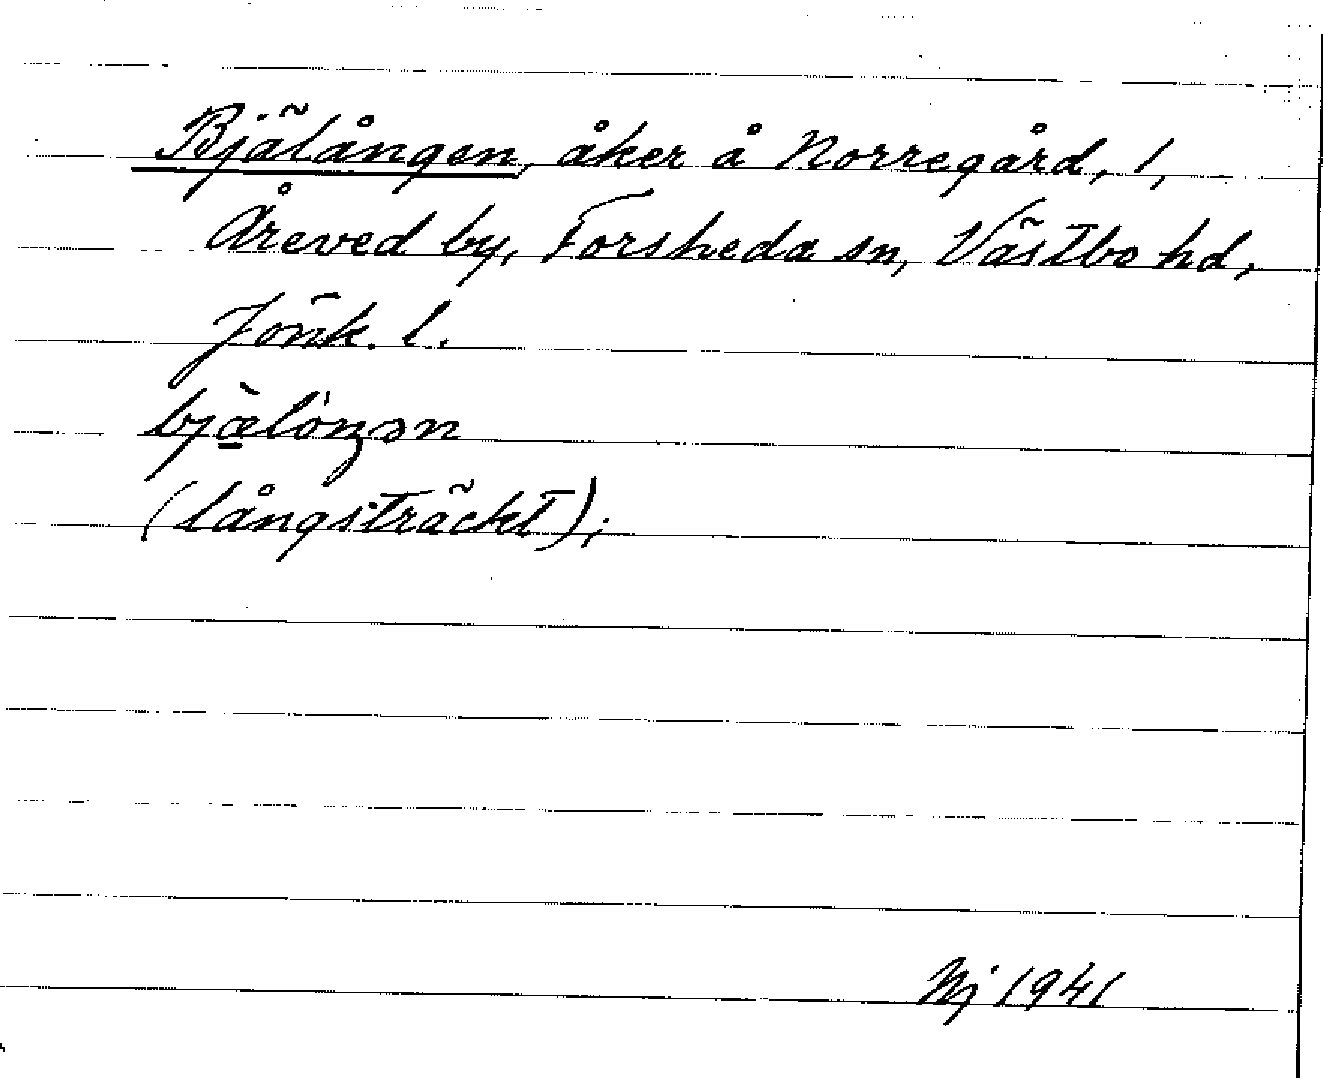 Bjälången, åker å Norregård, 1,
Åreved by, Forsheda sn, Västbo hd,
Jönk. l.
bjæ̀lóŋən
(långsträckt);
Nj 1941